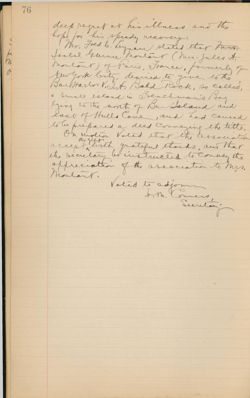 76
deep regret at his illness and the
hope for his speedy recovery.
Mr. Fred C. Lynam stated that
Isabel Montant (Mrs. Jules A.
Montant) of Paris, France, formerly of
New York City desired to give to the
Bar Harbor Bald Rock, so called,
a small island in Frenchman's Bay
lying to the north of Bar Island and
east of Hulls Cove, and had caused
to be prepared a deed conveying the title.
On motion Voted that the association
accept with grateful thanks, and that
the secretary be instructed to convey the
appreciation of the association to Mrs.
Montant.
Voted to adjourn
Secretary